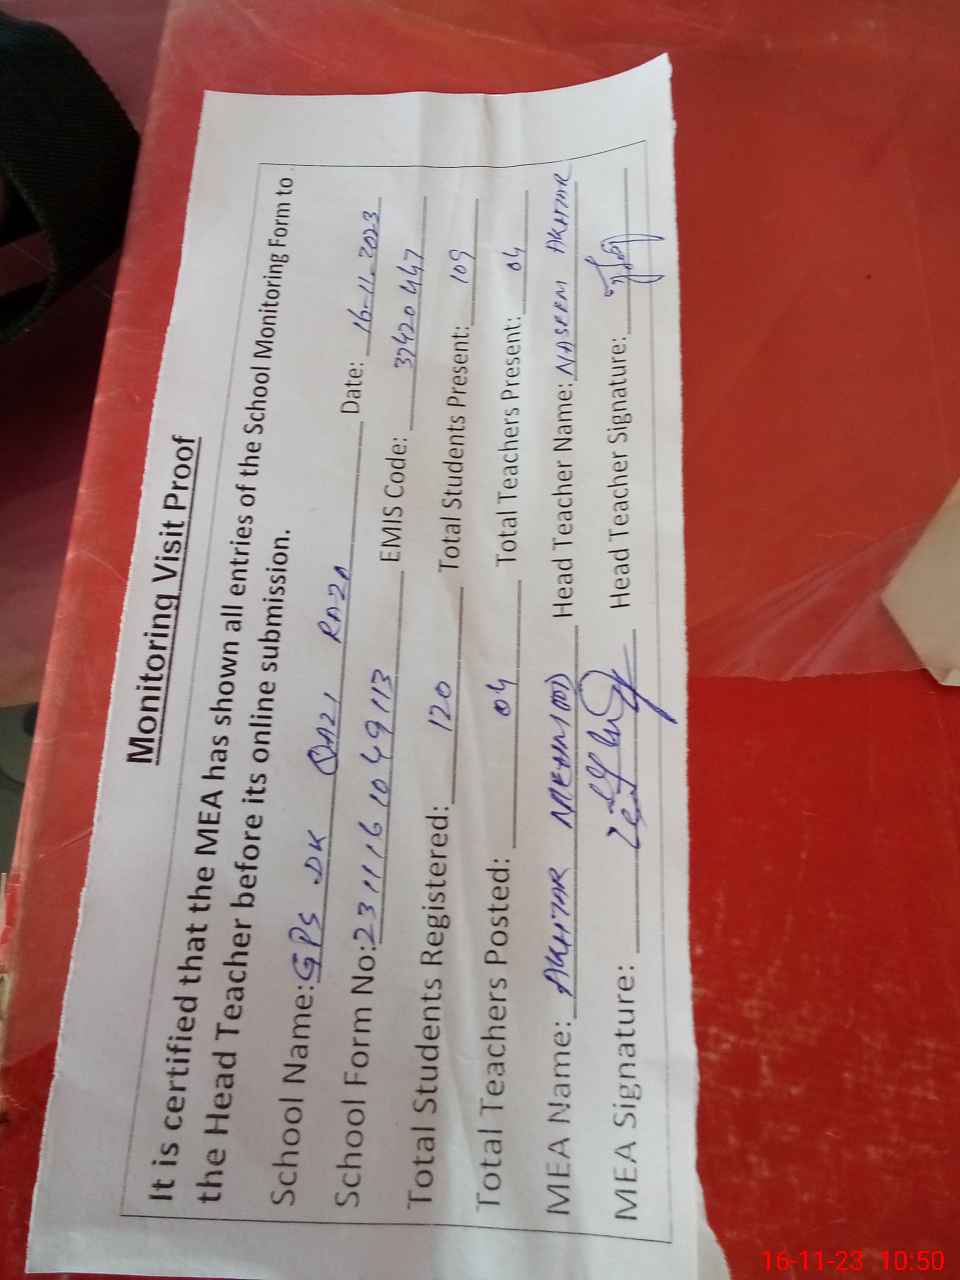 Monitoring Visit Proof
It is certified that the MEA has shown all entries of the School Monitoring Form to
the Head Teacher before its online submission.
School Name: GPS DK QAZI RAZA Date: 16-11-2023
School Form No: 231116 1049113 EMIS Code: 37420447
Total Students Registered: 120 Total Students Present: 109
Total Teachers Posted: 04 Total Teachers Present: 04
MEA Name: AKHTAR MEHMOOD Head Teacher Name: NASEEM AKHTAR
MEA Signature: Head Teacher Signature:
16-11-23 10:50